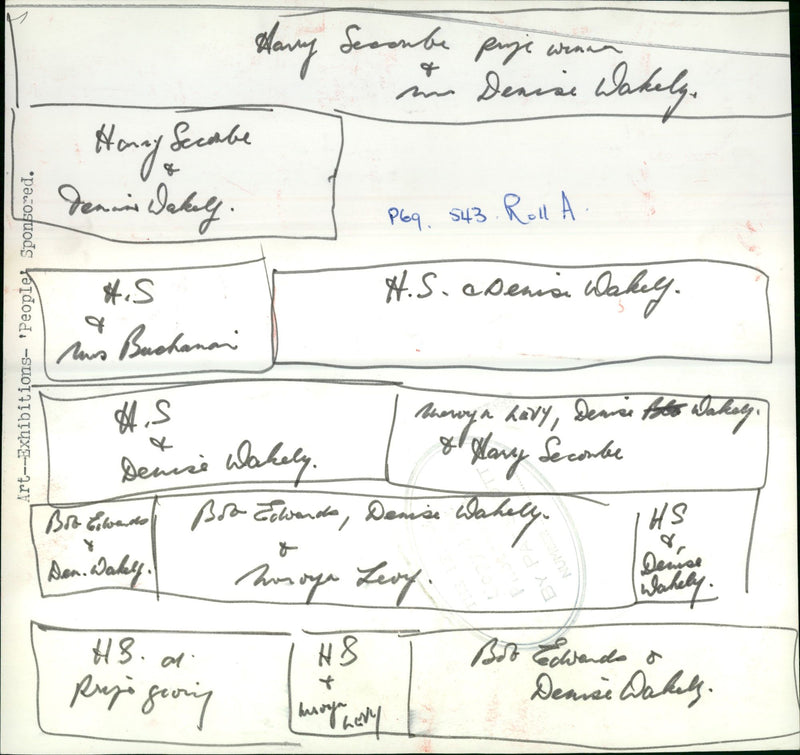 Harry Secombe prize winner
&
Mrs Denise Wakely.
Harry Secombe
&
Denise Wakely.
P69. 543. Roll A.
Art--Exhibitions- 'People' Sponsored.
H.S
&
Mrs Buchanan
H.S. & Denise Wakely.
H.S
&
Denise Wakely.
Mervyn Levy, Denise Wakely.
& Harry Secombe
Bob Edwards
&
Den. Wakely.
Bob Edwards, Denise Wakely.
&
Mervyn Levy.
HS
&
Denise
Wakely.
HS. at
Prize giving
HS
+
Mervyn
Levy
Bob Edwards &
Denise Wakely.